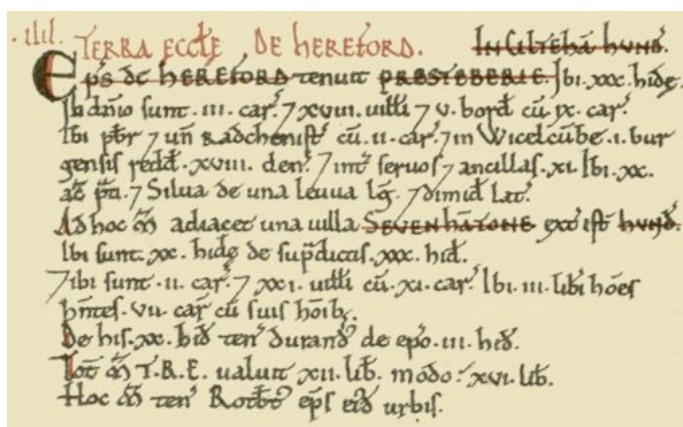 .IIII. TERRA ECCLE DE HEREFORD. IN CILTEHA HVND'.
Ep̄s de HEREFORD tenuit PRESTEBERIE. Ibi .xxx. hidę.
In dn̄io sunt .III. car'. 7 XVIII. uilli 7 V. bord' cū .IX. car'.
Ibi pb̄r 7 un' Radchenist' cū .II. car'. 7 in Wicelcūbe .I. bur
gensis redd' .XVIII. den'. 7 int' seruos 7 ancillas .XI. Ibi .XX.
ac̄ p̄ti. 7 Silua de una leuua lḡ. 7 dimid' lat'.
Ad hoc m̄ adiacet una uilla SEVENHATONE ext' ist' HVND'.
Ibi sunt .XX. hidę de sup̄dictis .XXX. hid'.
7 ibi sunt .II. car'. 7 XXI. uilli cū .XI. car'. Ibi .III. lib'i hōes
hn̄tes .VII. car' cū suis hōib;.
De his .XX. hid' ten' Durand' de ep̄o .III. hid'.
Tot' m̄ T.R.E. ualuit XII. lib'. modo: XVI. lib'.
Hoc m̄ ten' Rotb't' ep̄s eid' urbis.